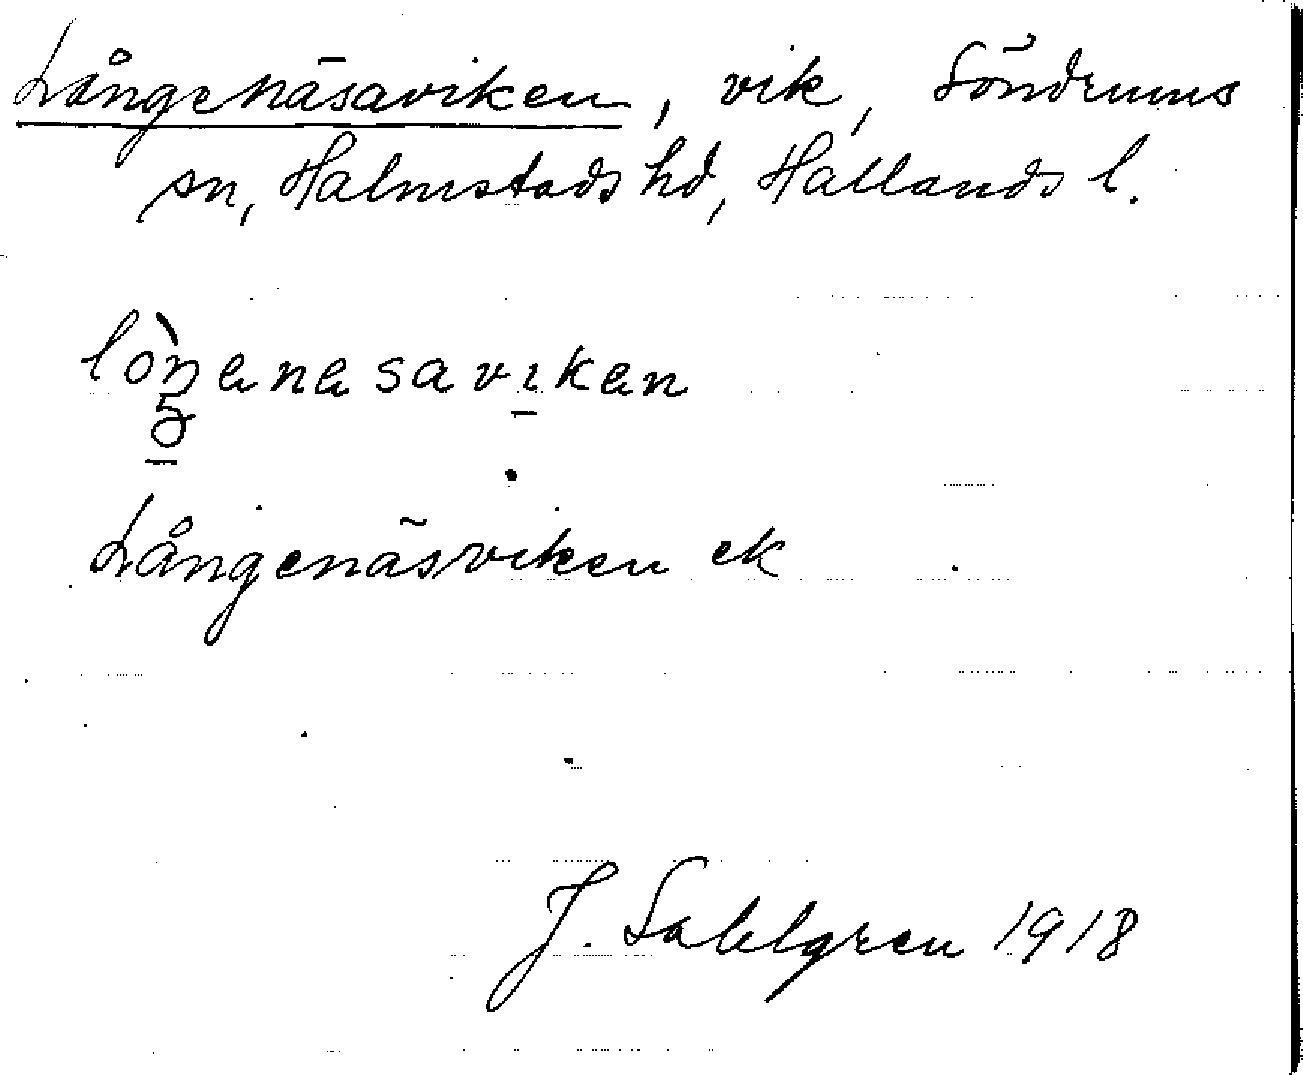 Långenäsaviken, vik, Söndrums
sn, Halmstads hd, Hallands l.
Långenäsviken ek
J. Sahlgren 1918